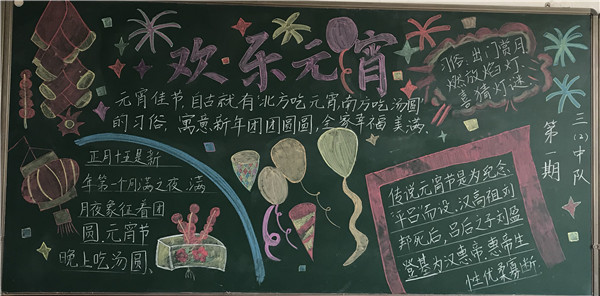 欢·乐元宵
元宵佳节,自古就有“北方吃元宵,南方吃汤圆”
的习俗,寓意新年团团圆圆,全家幸福美满.
习俗:出门赏月
燃放焰灯、
喜猜灯谜、
三(2)中队
第 期
正月十五是新
年第一个月满之夜,满
月夜象征着团
圆,元宵节
晚上吃汤圆、
传说元宵节是为纪念
平吕而设、汉高祖刘
邦死后,吕后之子刘盈
登基为汉惠帝.惠帝生
性优柔寡断.